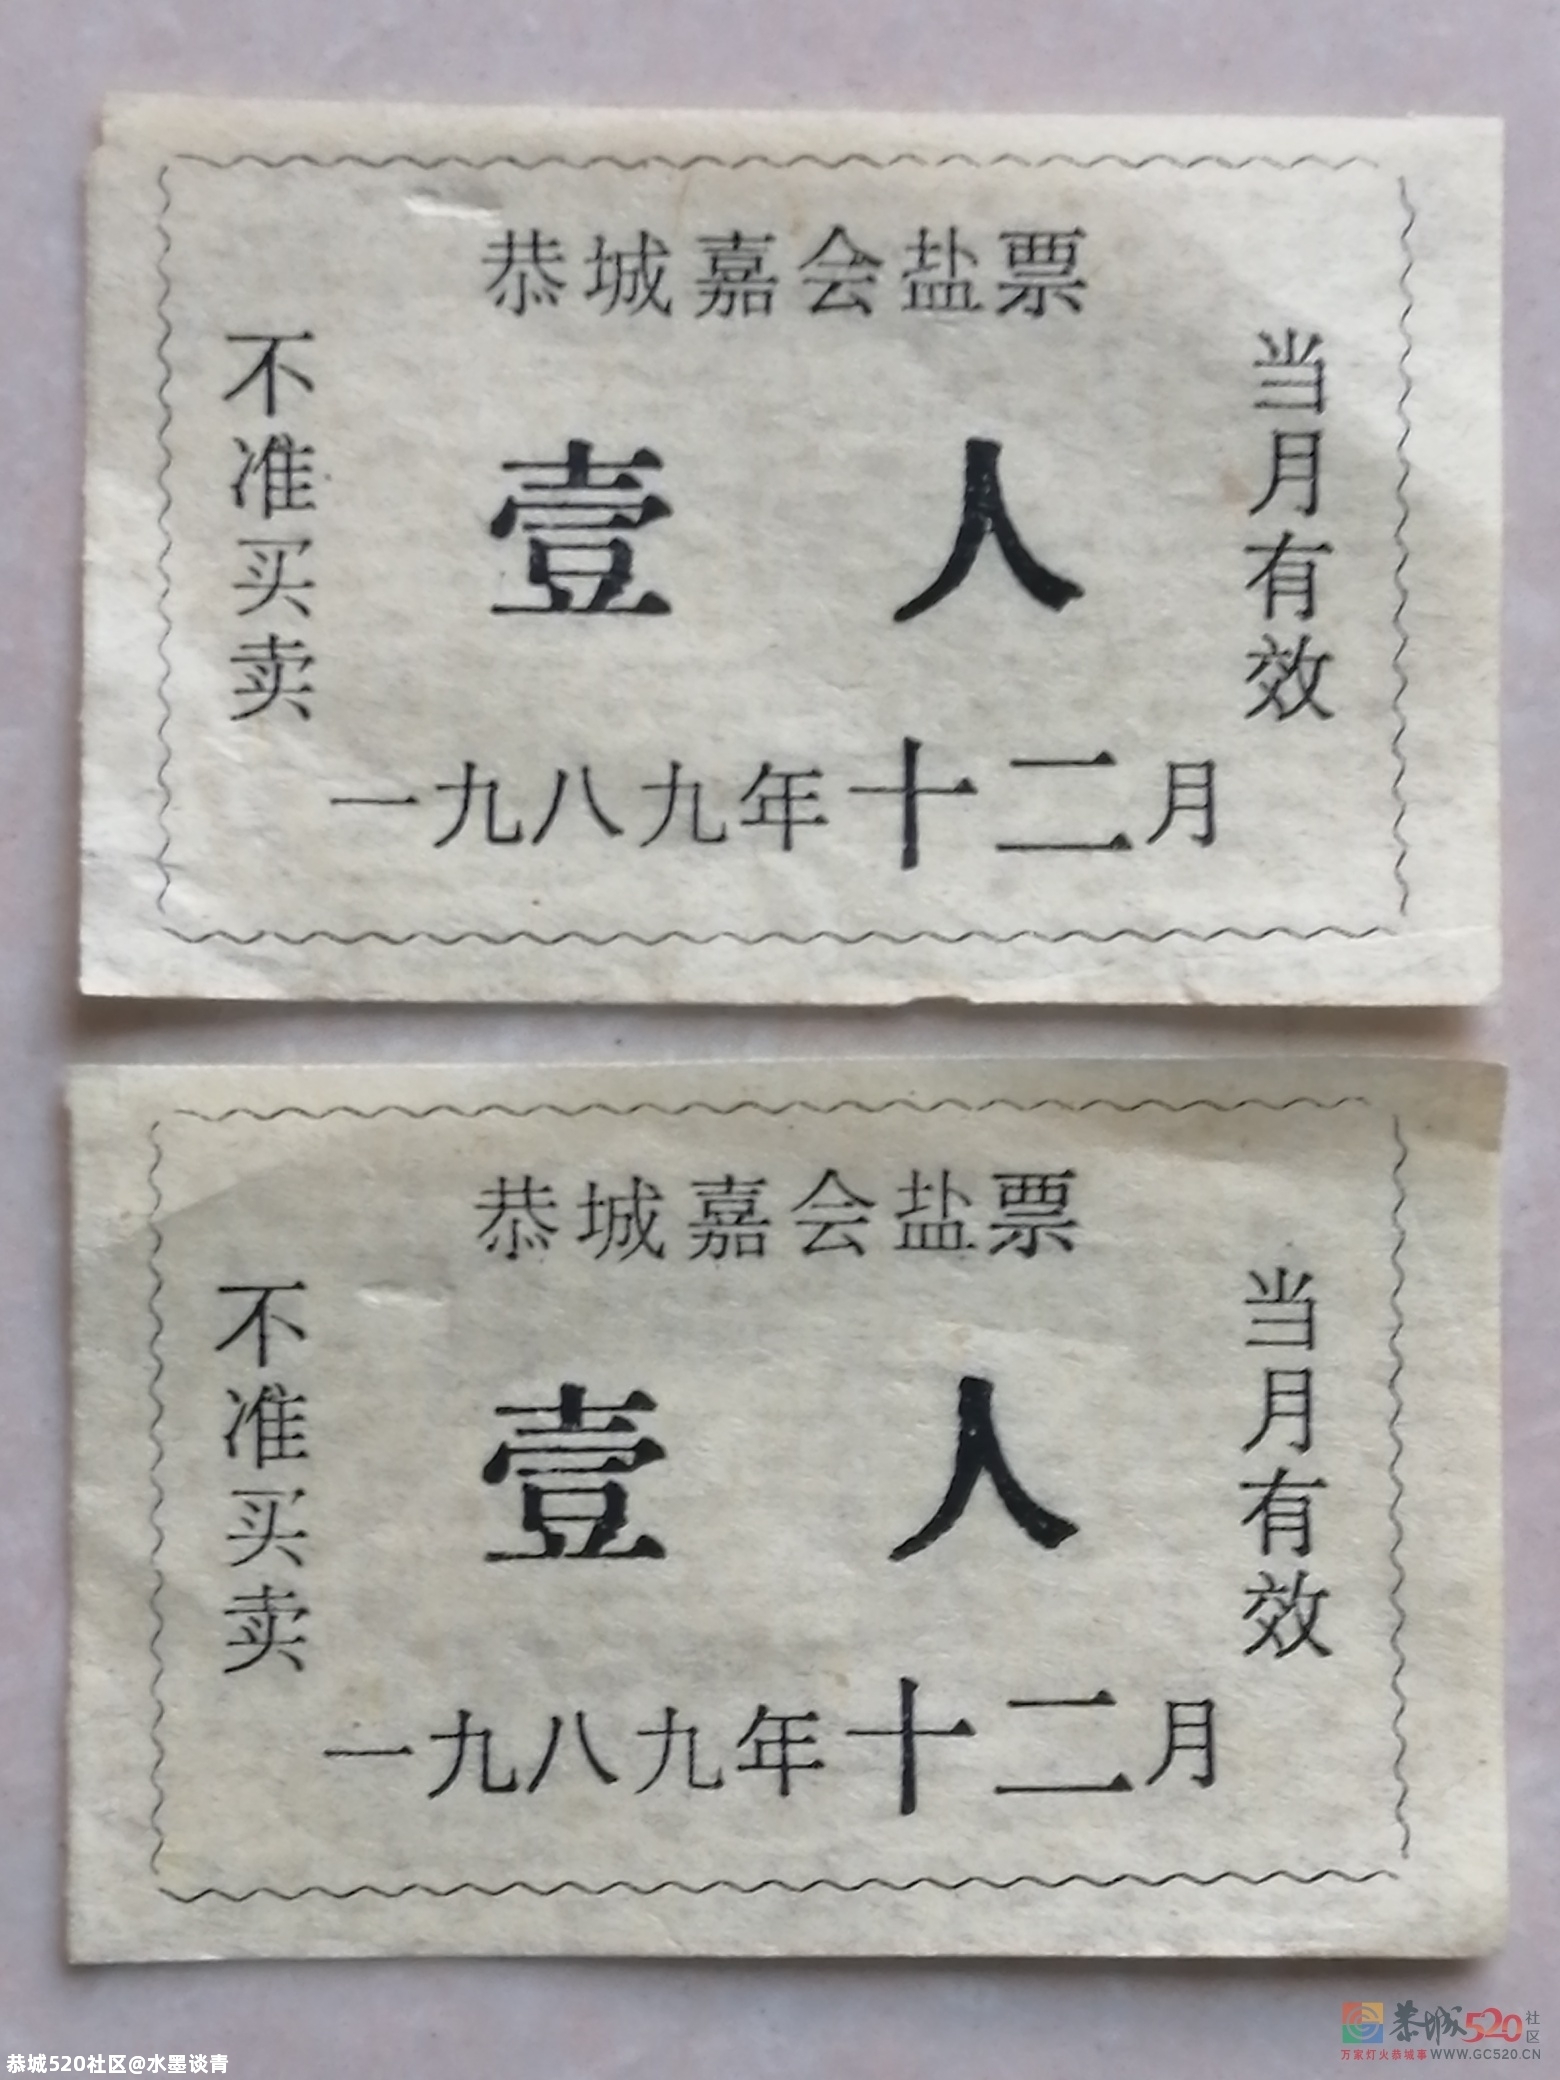 恭城嘉会盐票
不准买卖
壹人
当月有效
一九八九年十二月
恭城嘉会盐票
不准买卖
壹人
当月有效
一九八九年十二月
恭城520社区
万家灯火恭城事 WWW.GC520.CN
恭城520社区@水墨谈青